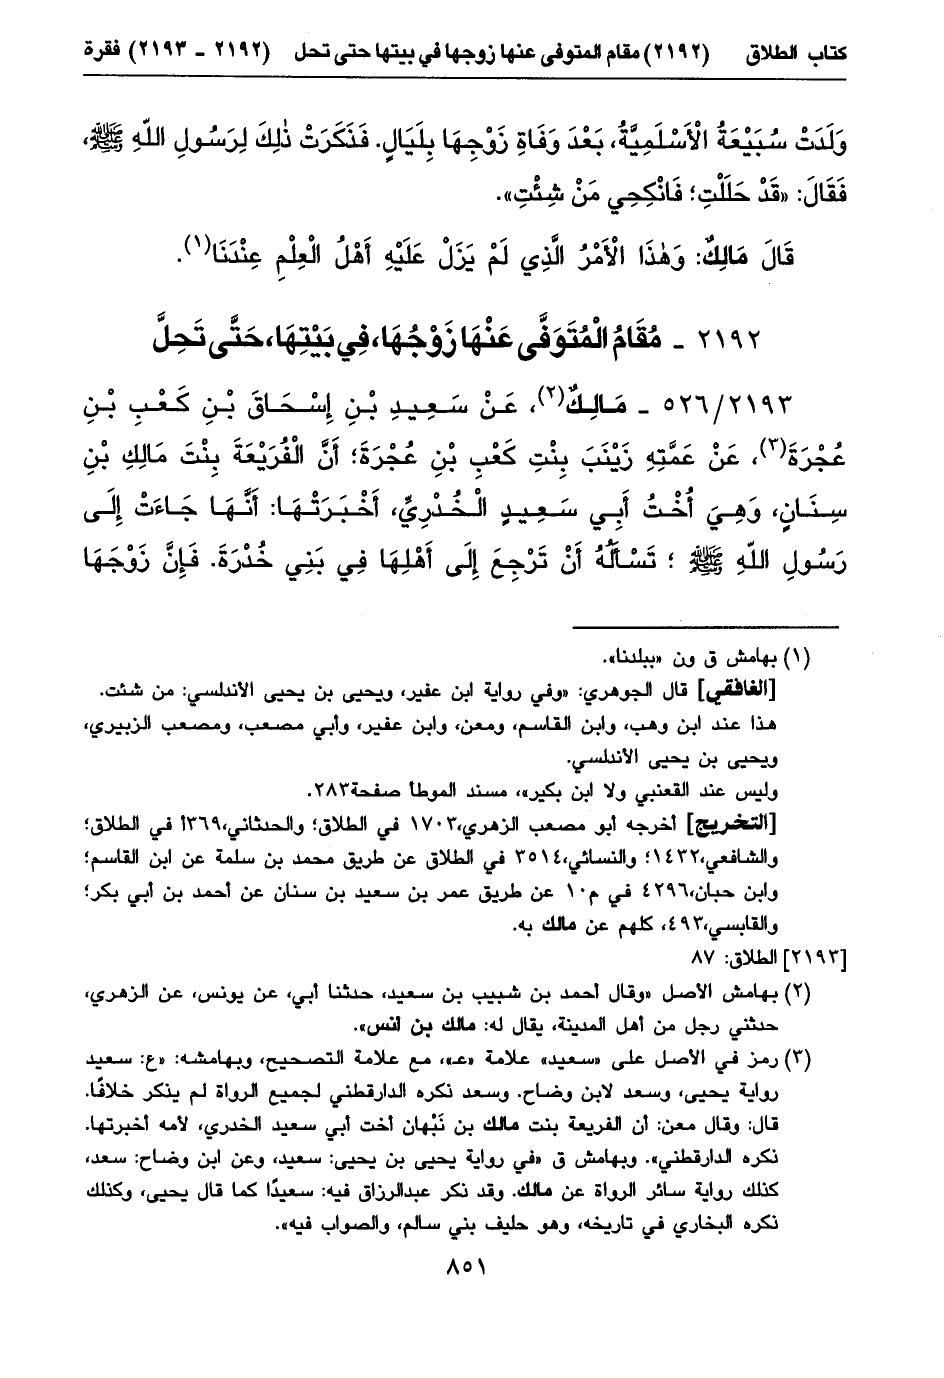 كتاب الطلاق (٢١٩٢) مقام المتوفى عنها زوجها في بيتها حتى تحل (٢١٩٢ - ٢١٩٣) فقرة
وَلَدَتْ سُبَيْعَةُ الْأَسْلَمِيَّةُ، بَعْدَ وَفَاةِ زَوْجِهَا بِلَيَالٍ. فَذَكَرَتْ ذٰلِكَ لِرَسُولِ اللّهِ ﷺ،
فَقَالَ: «قَدْ حَلَلْتِ؛ فَانْكِحِي مَنْ شِئْتِ».
قَالَ مَالِكٌ: وَهٰذَا الْأَمْرُ الَّذِي لَمْ يَزَلْ عَلَيْهِ أَهْلُ الْعِلْمِ عِنْدَنَا(١).
٢١٩٢ - مُقَامُ الْمُتَوَفَّى عَنْهَا زَوْجُهَا، فِي بَيْتِهَا، حَتَّى تَحِلَّ
٥٢٦/٢١٩٣ - مَالِكٌ(٢)، عَنْ سَعِيدِ بْنِ إِسْحَاقَ بْنِ كَعْبِ بْنِ
عُجْرَةَ(٣)، عَنْ عَمَّتِهِ زَيْنَبَ بِنْتِ كَعْبِ بْنِ عُجْرَةَ؛ أَنَّ الْفُرَيْعَةَ بِنْتَ مَالِكِ بْنِ
سِنَانٍ، وَهِيَ أُخْتُ أَبِي سَعِيدٍ الْخُدْرِيِّ، أَخْبَرَتْهَا: أَنَّهَا جَاءَتْ إِلَى
رَسُولِ اللّهِ ﷺ ؛ تَسْأَلُهُ أَنْ تَرْجِعَ إِلَى أَهْلِهَا فِي بَنِي خُدْرَةَ. فَإِنَّ زَوْجَهَا
(١) بهامش ق ون «ببلدنا».
[الغافقي] قال الجوهري: «وفي رواية ابن عفير، ويحيى بن يحيى الأندلسي: من شئت.
هذا عند ابن وهب، وابن القاسم، ومعن، وابن عفير، وأبي مصعب، ومصعب الزبيري،
ويحيى بن يحيى الأندلسي.
وليس عند القعنبي ولا ابن بكير»، مسند الموطأ صفحة٢٨٣.
[التخريج] أخرجه أبو مصعب الزهري،١٧٠٣ في الطلاق؛ والحدثاني،٣٦٩أ في الطلاق؛
والشافعي،١٤٣٢؛ والنسائي،٣٥١٤ في الطلاق عن طريق محمد بن سلمة عن ابن القاسم؛
وابن حبان،٤٢٩٦ في م١٠ عن طريق عمر بن سعيد بن سنان عن أحمد بن أبي بكر؛
والقابسي،٤٩٣، كلهم عن مالك به.
[٢١٩٣] الطلاق: ٨٧
(٢) بهامش الأصل «وقال أحمد بن شبيب بن سعيد، حدثنا أبي، عن يونس، عن الزهري،
حدثني رجل من أهل المدينة، يقال له: مالك بن أنس».
(٣) رمز في الأصل على «سعيد» علامة «عـ»، مع علامة التصحيح، وبهامشه: «ع: سعيد
رواية يحيى، وسعد لابن وضاح. وسعد نكره الدارقطني لجميع الرواة لم يذكر خلافًا.
قال: وقال معن: أن الفريعة بنت مالك بن نَبْهان أخت أبي سعيد الخدري، لأمه أخبرتها.
نكره الدارقطني». وبهامش ق «في رواية يحيى بن يحيى: سعيد، وعن ابن وضاح: سعد،
كذلك رواية سائر الرواة عن مالك. وقد نكر عبدالرزاق فيه: سعيدًا كما قال يحيى، وكذلك
نكره البخاري في تاريخه، وهو حليف بني سالم، والصواب فيه».
٨٥١